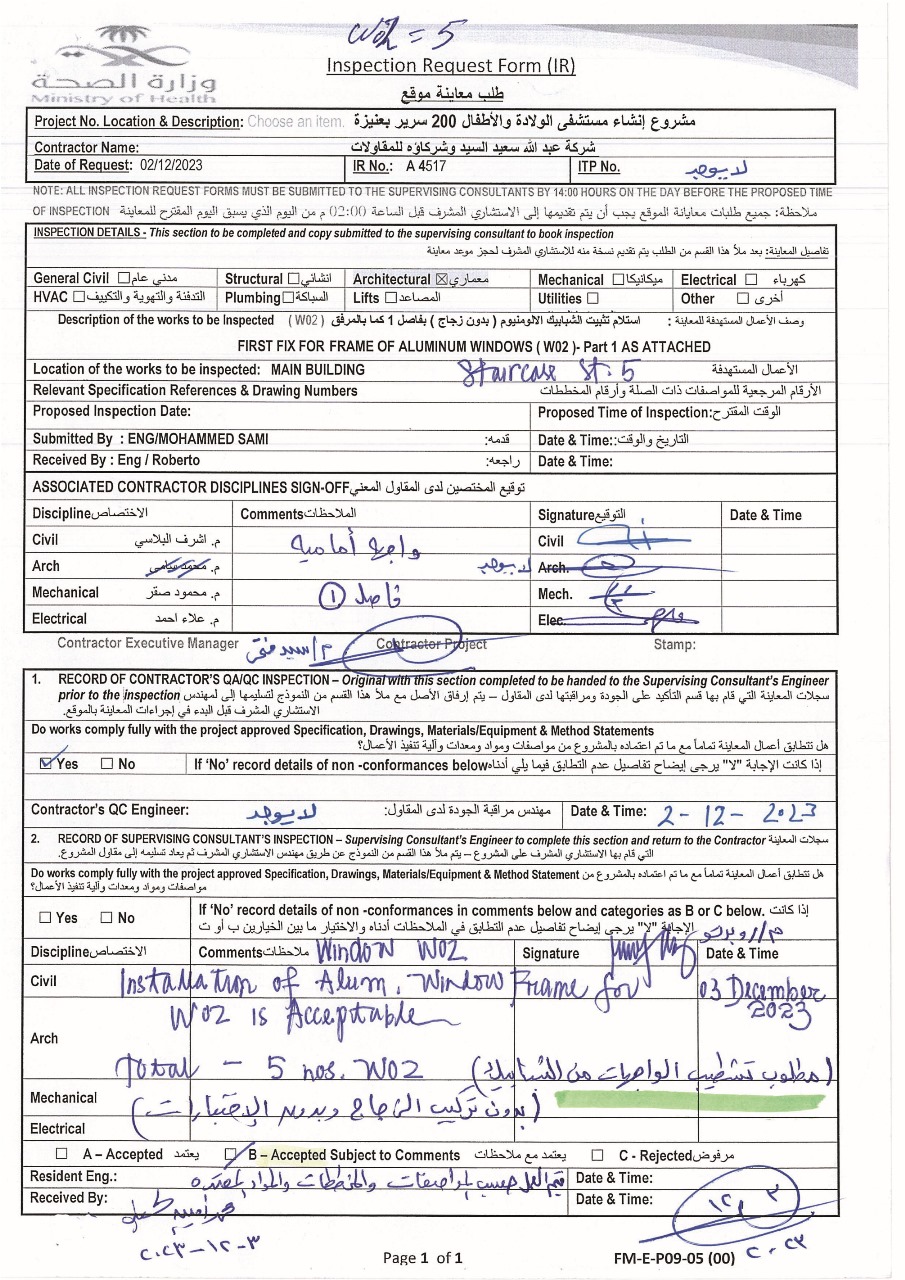 W02 = 5
Inspection Request Form (IR)
طلب معاينة موقع
وزارة الصحة
Ministry of Health
Project No. Location & Description: Choose an item. مشروع إنشاء مستشفى الولادة والأطفال 200 سرير بعنيزة
Contractor Name: شركة عبد الله سعيد السيد وشركاؤه للمقاولات
Date of Request: 02/12/2023 IR No.: A 4517 ITP No. لا يوجد
NOTE: ALL INSPECTION REQUEST FORMS MUST BE SUBMITTED TO THE SUPERVISING CONSULTANTS BY 14:00 HOURS ON THE DAY BEFORE THE PROPOSED TIME
OF INSPECTION ملاحظة: جميع طلبات معاياتة الموقع يجب أن يتم تقديمها إلى الاستشاري المشرف قبل الساعة 02:00 م من اليوم الذي يسبق اليوم المقترح للمعاينة
INSPECTION DETAILS - This section to be completed and copy submitted to the supervising consultant to book inspection
تفاصيل المعاينة: بعد ملأ هذا القسم من الطلب يتم تقديم نسخة منه للاستشاري المشرف لحجز موعد معاينة
General Civil ☐ مدني عام Structural ☐ انشائي Architectural ☒ معماري Mechanical ☐ ميكانيكا Electrical ☐ كهرباء
HVAC ☐ التدفئة والتهوية والتكييف Plumbing ☐ السباكة Lifts ☐ المصاعد Utilities ☐ Other ☐ أخرى
Description of the works to be Inspected (W02) استلام تثبيت الشبابيك الالومنيوم ( بدون زجاج ) بفاصل 1 كما بالمرفق وصف الأعمال المستهدفة للمعاينة :
FIRST FIX FOR FRAME OF ALUMINUM WINDOWS ( W02 )- Part 1 AS ATTACHED
Location of the works to be inspected: MAIN BUILDING Staircase St. 5 الأعمال المستهدفة
Relevant Specification References & Drawing Numbers الأرقام المرجعية للمواصفات ذات الصلة وأرقام المخططات
Proposed Inspection Date: Proposed Time of Inspection: الوقت المقترح:
Submitted By : ENG/MOHAMMED SAMI قدمه: Date & Time:: التاريخ والوقت:
Received By : Eng / Roberto راجعه: Date & Time:
ASSOCIATED CONTRACTOR DISCIPLINES SIGN-OFF توقيع المختصين لدى المقاول المعني
Discipline الاختصاص Comments الملاحظات Signature التوقيع Date & Time
Civil م. اشرف البلاسي واجهة أمامية Civil
Arch م. محمد سامي لا يوجد Arch.
Mechanical م. محمود صقر فاصل 1 Mech.
Electrical م. علاء احمد Elec.
Contractor Executive Manager م/ سيد فتحى Contractor Project Stamp:
1. RECORD OF CONTRACTOR'S QA/QC INSPECTION – Original with this section completed to be handed to the Supervising Consultant's Engineer
prior to the inspection سجلات المعاينة التي قام بها قسم التأكيد على الجودة ومراقبتها لدى المقاول – يتم إرفاق الأصل مع ملأ هذا القسم من النموذج لتسليمها إلى لمهندس
الاستشاري المشرف قبل البدء في إجراءات المعاينة بالموقع.
Do works comply fully with the project approved Specification, Drawings, Materials/Equipment & Method Statements
هل تتطابق أعمال المعاينة تماماً مع ما تم اعتماده بالمشروع من مواصفات ومواد ومعدات وآلية تنفيذ الأعمال؟
☑ Yes ☐ No If 'No' record details of non -conformances below إذا كانت الإجابة "لا" يرجى إيضاح تفاصيل عدم التطابق فيما يلي أدناه
Contractor's QC Engineer: لا يوجد مهندس مراقبة الجودة لدى المقاول: Date & Time: 2-12-2023
2. RECORD OF SUPERVISING CONSULTANT'S INSPECTION – Supervising Consultant's Engineer to complete this section and return to the Contractor سجلات المعاينة
التي قام بها الاستشاري المشرف على المشروع – يتم ملأ هذا القسم من النموذج عن طريق مهندس الاستشاري المشرف ثم يعاد تسليمه إلى مقاول المشروع.
Do works comply fully with the project approved Specification, Drawings, Materials/Equipment & Method Statement هل تتطابق أعمال المعاينة تماماً مع ما تم اعتماده بالمشروع من
مواصفات ومواد ومعدات وآلية تنفيذ الأعمال؟
☐ Yes ☐ No If 'No' record details of non -conformances in comments below and categories as B or C below. إذا كانت
الإجابة "لا" يرجى إيضاح تفاصيل عدم التطابق في الملاحظات أدناه والاختيار ما بين الخيارين ب أو ت
م/ روبرتو
Discipline الاختصاص Comments ملاحظات Window W02 Signature Date & Time
Civil Installation of Alum. Window Frame for 03 December 2023
W02 is Acceptable
Arch
Total – 5 nos. W02 (مطلوب تشطيب الواجهات من الشبابيك)
Mechanical (بدون تركيب الزجاج وبدون الإختبارات)
Electrical
☐ A – Accepted يعتمد ☑ B – Accepted Subject to Comments يعتمد مع ملاحظات ☐ C - Rejected مرفوض
Resident Eng.: يتم العمل حسب المواصفات والمخططات والمواد المعتمدة Date & Time:
Received By: Date & Time: ٣ / ١٢
٢٠٢٣-١٢-٣ ٢٠٢٣
Page 1 of 1 FM-E-P09-05 (00)